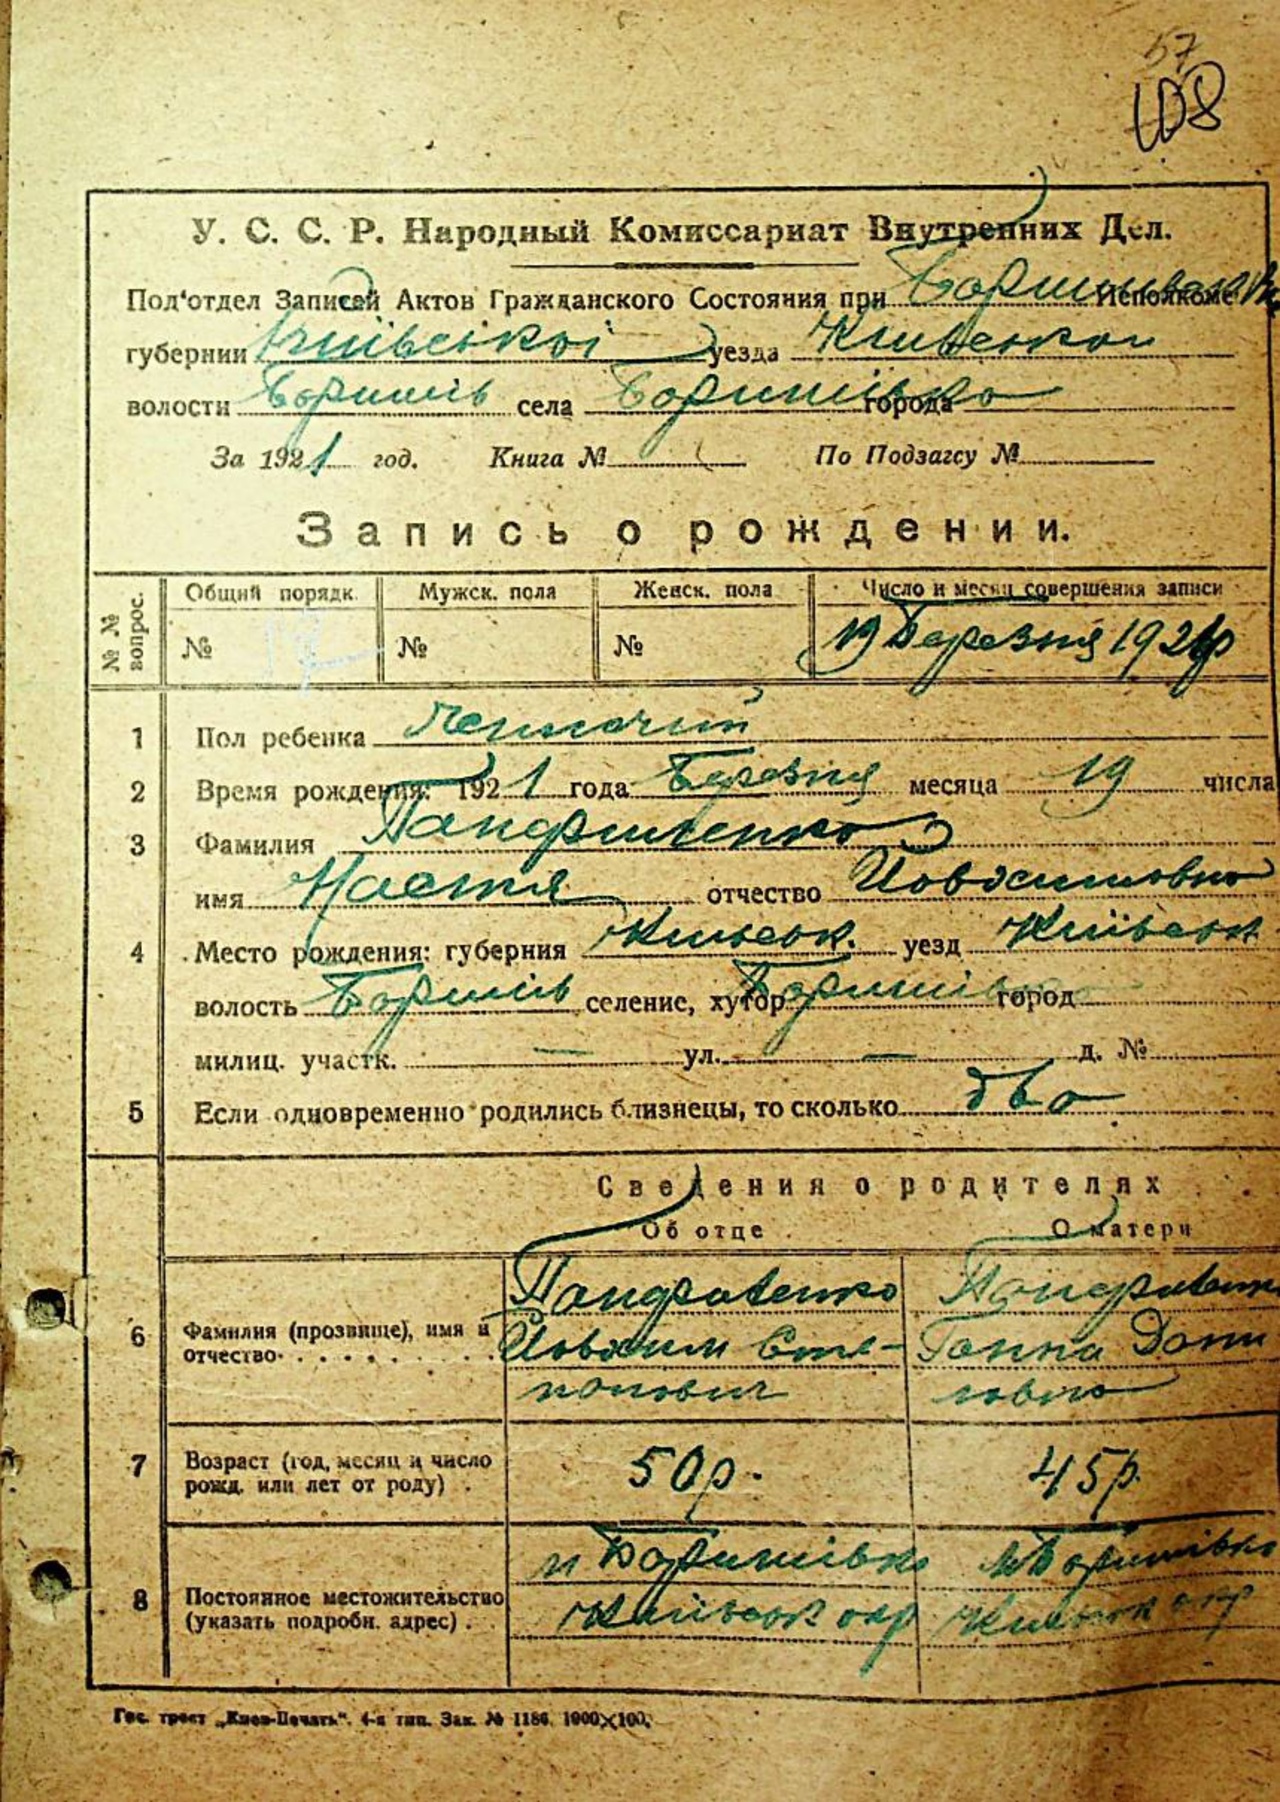 57
108
У. С. С. Р. Народный Комиссариат Внутренних Дел.
Под'отдел Записей Актов Гражданского Состояния при Исполкоме
губернии Київської уезда Київської
волости Боришів села Боришівка города
За 1921 год. Книга № По Подзагсу №
Запись о рождении.
№ № вопрос. Общий порядк. Мужск. пола Женск. пола Число и месяц совершения записи
№ № № 19 Березня 1921р
1 Пол ребенка
2 Время рождения: 1921 года Березня месяца 19 числа
3 Фамилия
имя Настя отчество Йовхимовна
4 Место рождения: губерния Київськ. уезд Київськ
волость Боришів селение, хутор Боришівка город
милиц. участк. — ул. — д. №
5 Если одновременно родились близнецы, то сколько два
Сведения о родителях
Об отце О матери
6 Фамилия (прозвище), имя и отчество
Йовхим Сте-
повович
Ганна Дани
ловна
7 Возраст (год, месяц и число рожд. или лет от роду) . 50р. 45р.
8 Постоянное местожительство (указать подробн. адрес) .
м Боришівка м Боришівка
Київськ окр Київськ окр
Гос. трест „Киев-Печать“. 4-я тип. Зак. № 1186. 1000×100.